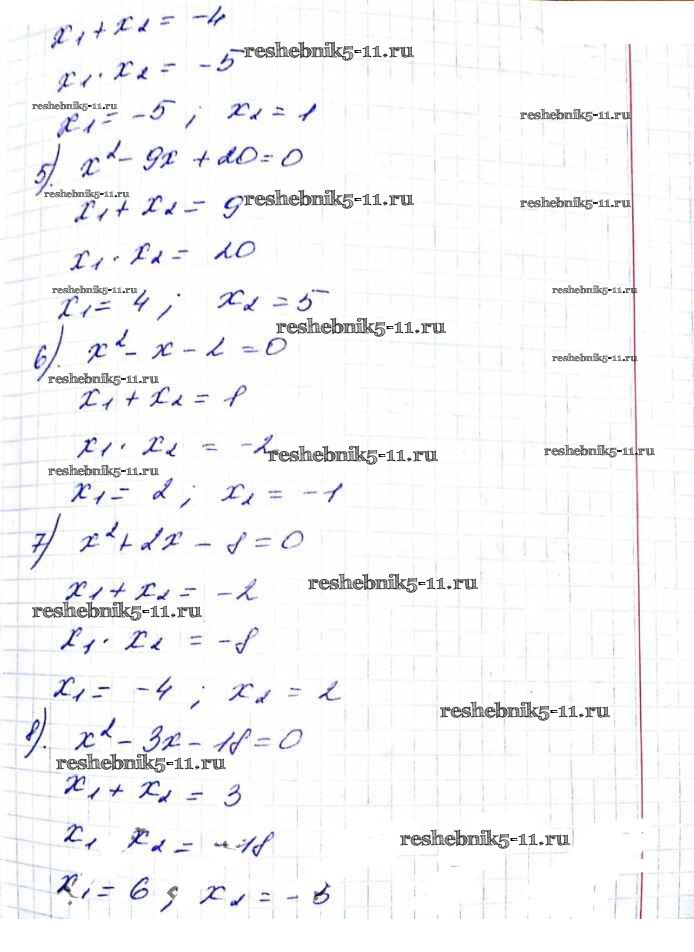 x₁ + x₂ = -4
reshebnik5-11.ru
x₁ · x₂ = -5
reshebnik5-11.ru
reshebnik5-11.ru
x₁ = -5 ; x₂ = 1
5). x² - 9x + 20 = 0
reshebnik5-11.ru
reshebnik5-11.ru
reshebnik5-11.ru
x₁ + x₂ = 9
x₁ · x₂ = 20
reshebnik5-11.ru
reshebnik5-11.ru
x₁ = 4 ; x₂ = 5
reshebnik5-11.ru
6). x² - x - 2 = 0
reshebnik5-11.ru
reshebnik5-11.ru
x₁ + x₂ = 1
x₁ · x₂ = -2
reshebnik5-11.ru
reshebnik5-11.ru
reshebnik5-11.ru
x₁ = 2 ; x₂ = -1
7) x² + 2x - 8 = 0
reshebnik5-11.ru
x₁ + x₂ = -2
reshebnik5-11.ru
x₁ · x₂ = -8
x₁ = -4 ; x₂ = 2
reshebnik5-11.ru
8). x² - 3x - 18 = 0
reshebnik5-11.ru
x₁ + x₂ = 3
x₁ x₂ = -18
reshebnik5-11.ru
x₁ = 6 ; x₂ = -